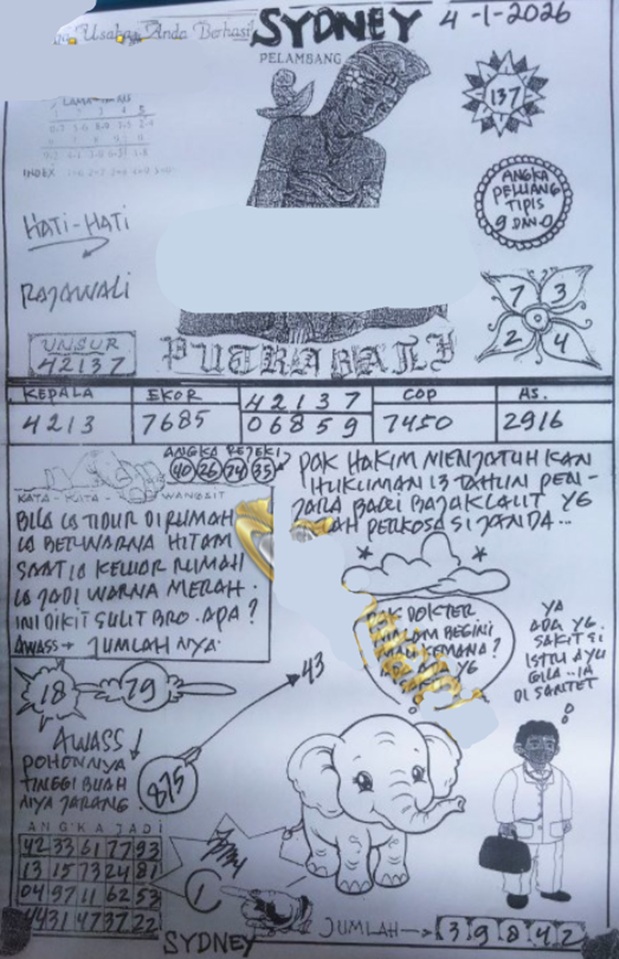 Usaha Anda Berhasil
SYDNEY
4-1-2026
PELAMBANG
137
LAMA
INDEX
ANGKA
PELUANG
TIPIS
9 DAN 0
HATI-HATI
RAJAWALI
7 3
2 4
UNSUR
42137
PUTRA BALI
KEPALA
EKOR
42137
COP
AS.
4213
7685
06859
7450
2916
ANGKA REJEKI
40 26 74 35
KATA - KATA - WANGSIT
BILA IA TIDUR DIRUMAH
IA BERWARNA HITAM
SAAT IA KELUAR RUMAH
IA JADI WARNA MERAH.
INI DIKIT SULIT BRO. APA?
AWASS → JUMLAH NYA.
PAK HAKIM MENJATUHKAN
HUKUMAN 13 TAHUN PEN-
JARA BAGI BAJAK LAUT YG
PERKOSA SI JANDA...
PAK DOKTER
MALAM BEGINI
MAU KEMANA?
YG
YA
ADA YG.
SAKIT SI
ISTRI AYU
GILA.. IA
DI SANTET
18
79
43
AWASS
POHONNYA
TINGGI BUAH
NYA JARANG
875
ANGKA JADI
42 33 61 77 93
13 15 73 24 81
04 97 11 62 53
44 31 47 37 22
1
SYDNEY
JUMLAH → 3 9 8 4 2